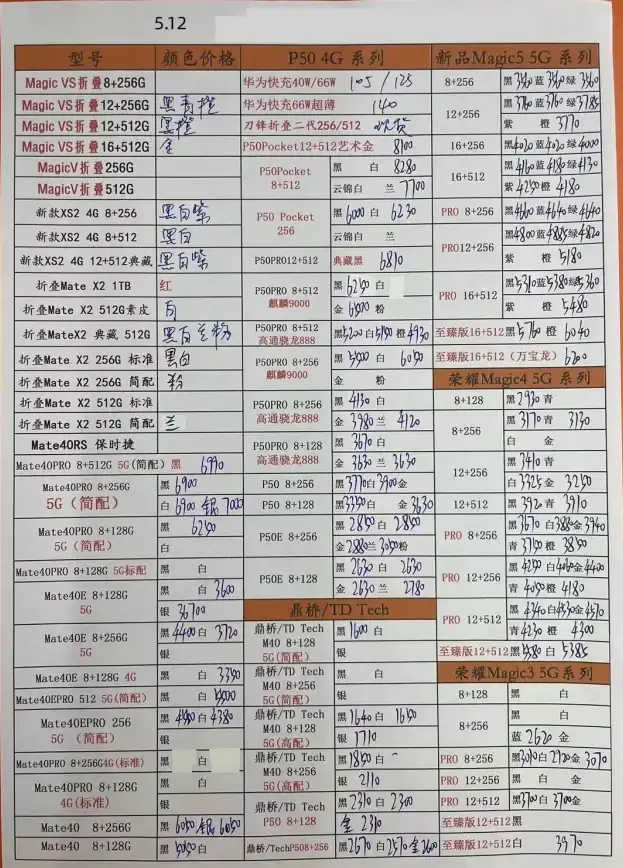 5.12
型号 颜色价格
Magic VS折叠8+256G
Magic VS折叠12+256G 黑青橙
Magic VS折叠12+512G 黑橙
Magic VS折叠16+512G 金
MagicV折叠256G
MagicV折叠512G
新款XS2 4G 8+256 黑白紫
新款XS2 4G 8+512 黑白
新款XS2 4G 12+512典藏 黑白紫
折叠Mate X2 1TB 红
折叠Mate X2 512G素皮 白
折叠MateX2 典藏 512G 黑白兰粉
折叠Mate X2 256G 标准 黑白
折叠Mate X2 256G 简配 粉
折叠Mate X2 512G 标准
折叠Mate X2 512G 简配 兰
Mate40RS 保时捷
Mate40PRO 8+512G 5G(简配) 黑 6990
Mate40PRO 8+256G 黑 6900
5G（简配） 白 6900 银 7000
Mate40PRO 8+128G 黑 6250
5G（简配） 白
Mate40PRO 8+128G 5G标配 黑 白
Mate40E 8+128G 黑 白 3600
5G 银 3700
Mate40E 8+256G 黑 4400 白 3720
5G 银
Mate40E 8+128G 4G 黑 白 3350
Mate40EPRO 512 5G(简配) 黑 白
Mate40EPRO 256 黑 白 4380
5G （简配） 银
Mate40PRO 8+256G4G(标准) 黑 白
Mate40PRO 8+128G 黑 白
4G(标准) 银
Mate40 8+256G 黑 6050 银 6050
Mate40 8+128G 黑 白
P50 4G 系列
华为快充40W/66W 105 / 125
华为快充66W超薄 140
刀锋折叠二代256/512
P50Pocket12+512艺术金 8100
P50Pocket 黑 白 8280
8+512 云锦白 兰 7700
P50 Pocket 黑 6000 白 6230
256 云锦白 兰
P50PRO12+512 典藏黑 6810
P50PRO 8+512 黑 6250 白
麒麟9000 金 粉
P50PRO 8+512 黑 5200 白 5150 橙 4930
高通骁龙888
P50PRO 8+256 黑 5900 白 6050
麒麟9000 金 粉
P50PRO 8+256 黑 4130 白
高通骁龙888 金 3980 兰 4120
P50PRO 8+128 黑 3670 白
高通骁龙888 金 3630 兰 3630
P50 8+256 黑 3770 白 3900 金
P50 8+128 黑 3350 白 金 3630
P50E 8+256 黑 2850 白 2850
金 2880 兰 3050 粉
P50E 8+128 黑 2630 白 2630
金 2630 兰 2780
鼎桥/TD Tech
鼎桥/TD Tech 黑 1600 白
M40 8+128 银
5G(简配)
鼎桥/TD Tech 黑 白
M40 8+256 银
5G(简配)
鼎桥/TD Tech 黑 1640 白 1650
M40 8+128 银 1710
5G(高配)
鼎桥/TD Tech 黑 1850 白
M40 8+256 银 2110
5G(高配)
鼎桥/TD Tech 黑 2310 白 2300
P50 8+128 金 2310
鼎桥/TechP508+256 黑 2670 白 2570 金 2600
新品Magic5 5G 系列
8+256 黑 3540 蓝 3540 绿 3560
12+256 黑 3760 蓝 3760 绿 3785
紫 橙 3770
16+256 黑 4020 蓝 4020 绿 4000
16+512 黑 4160 蓝 4180 绿 4130
紫 4250 橙 4180
PRO 8+256 黑 4660 蓝 4640 绿 4640
PRO12+256 黑 4800 蓝 4885 绿 4820
紫 橙 5180
PRO 16+512 黑 5310 蓝 5380 绿 5360
紫 橙 5480
至臻版16+512 黑 5760 橙 6040
至臻版16+512（万宝龙） 6200
荣耀Magic4 5G 系列
8+128 黑 2930 青
8+256 黑 3170 青 3130
白 金
12+256 黑 3410 青
白 3325 金 3250
12+512 黑 3920 青 3910
PRO 8+256 黑 3670 白 3880 金 3940
青 3750 橙 3850
PRO 12+256 黑 4250 白 4060 金 4400
青 4050 橙 4180
PRO 12+512 黑 4340 白 4530 金 4570
青 4230 橙 4300
至臻版12+512 黑 5380 白 5385
荣耀Magic3 5G系列
8+128 黑 白
8+256 黑 白
蓝 2620 金
PRO 8+256 黑 3010 白 2920 金 3070
PRO 12+256 黑 白 金
PRO 12+512 黑 3700 白 3700 金
至臻版12+512 黑
至臻版12+512 白 3970